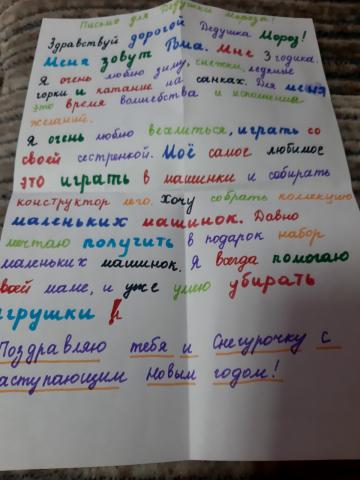 Письмо для Дедушки Мороза!
Здравствуй дорогой Дедушка Мороз!
Меня зовут Рома. Мне 3 годика.
Я очень люблю зиму, снежки, ледяные
горки и катание на санках. Для меня
это время волшебства и исполнения
желаний.
Я очень люблю веселиться, играть со
своей сестренкой. Моё самое любимое
это играть в машинки и собирать
конструктор лего. Хочу собрать коллекцию
маленьких машинок. Давно
мечтаю получить в подарок набор
маленьких машинок. Я всегда помогаю
своей маме, и уже умею убирать
игрушки!
Поздравляю тебя и Снегурочку с
наступающим Новым годом!